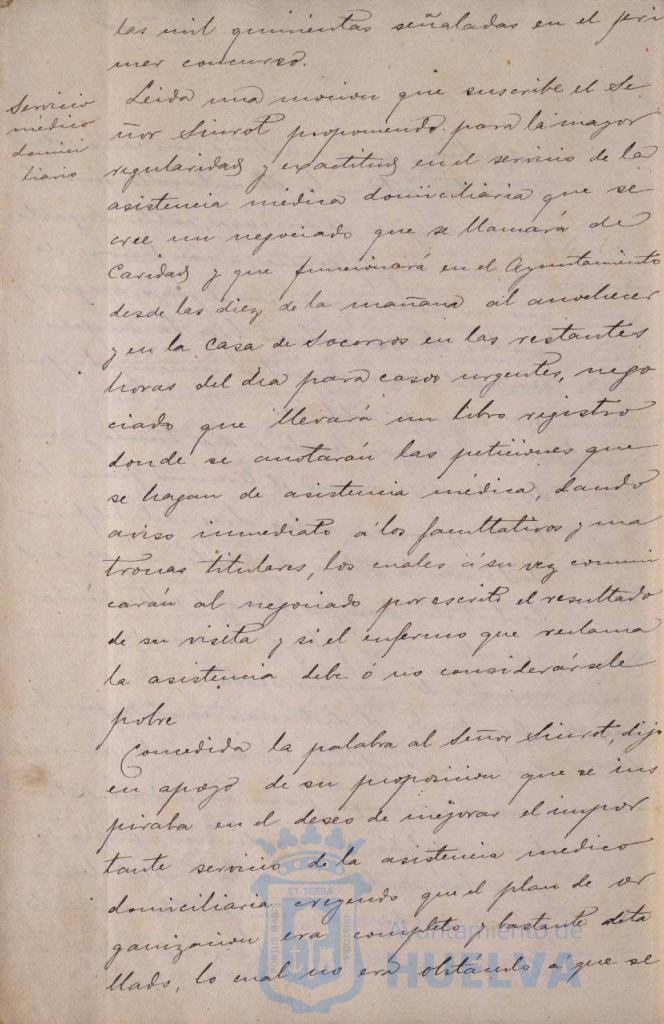 las mil quinientas señaladas en el pri
mer concurso.
Servicio
médico
domici
liario
Leida una mocion que suscribe el Se
ñor Siurot proponiendo para la mayor
regularidad y exactitud en el servicio de la
asistencia médica domiciliaria que se
cree un negociado que se llamará de
Caridad y que funcionará en el Ayuntamiento
desde las diez de la mañana al anochecer
y en la Casa de Socorros en las restantes
horas del dia para casos urgentes, nego
ciado que llevará un libro registro
donde se anotarán las peticiones que
se hagan de asistencia médica, dando
aviso inmediato á los facultativos y ma
tronas titulares, los cuales á su vez comuni
carán al negociado por escrito el resultado
de su visita y si el enfermo que reclama
la asistencia debe ó no considerársele
pobre
Concedida la palabra al Señor Siurot, dijo
en apoyo de su proposicion que se ins
piraba en el deseo de mejorar el impor
tante servicio de la asistencia médico
domiciliaria creyendo que el plan de or
ganizacion era completo y bastante deta
llado, lo cual no era obstáculo a que se
ET TERRÆ
PORTUS MARIS
CUSTODIA
Ayuntamiento de
HUELVA